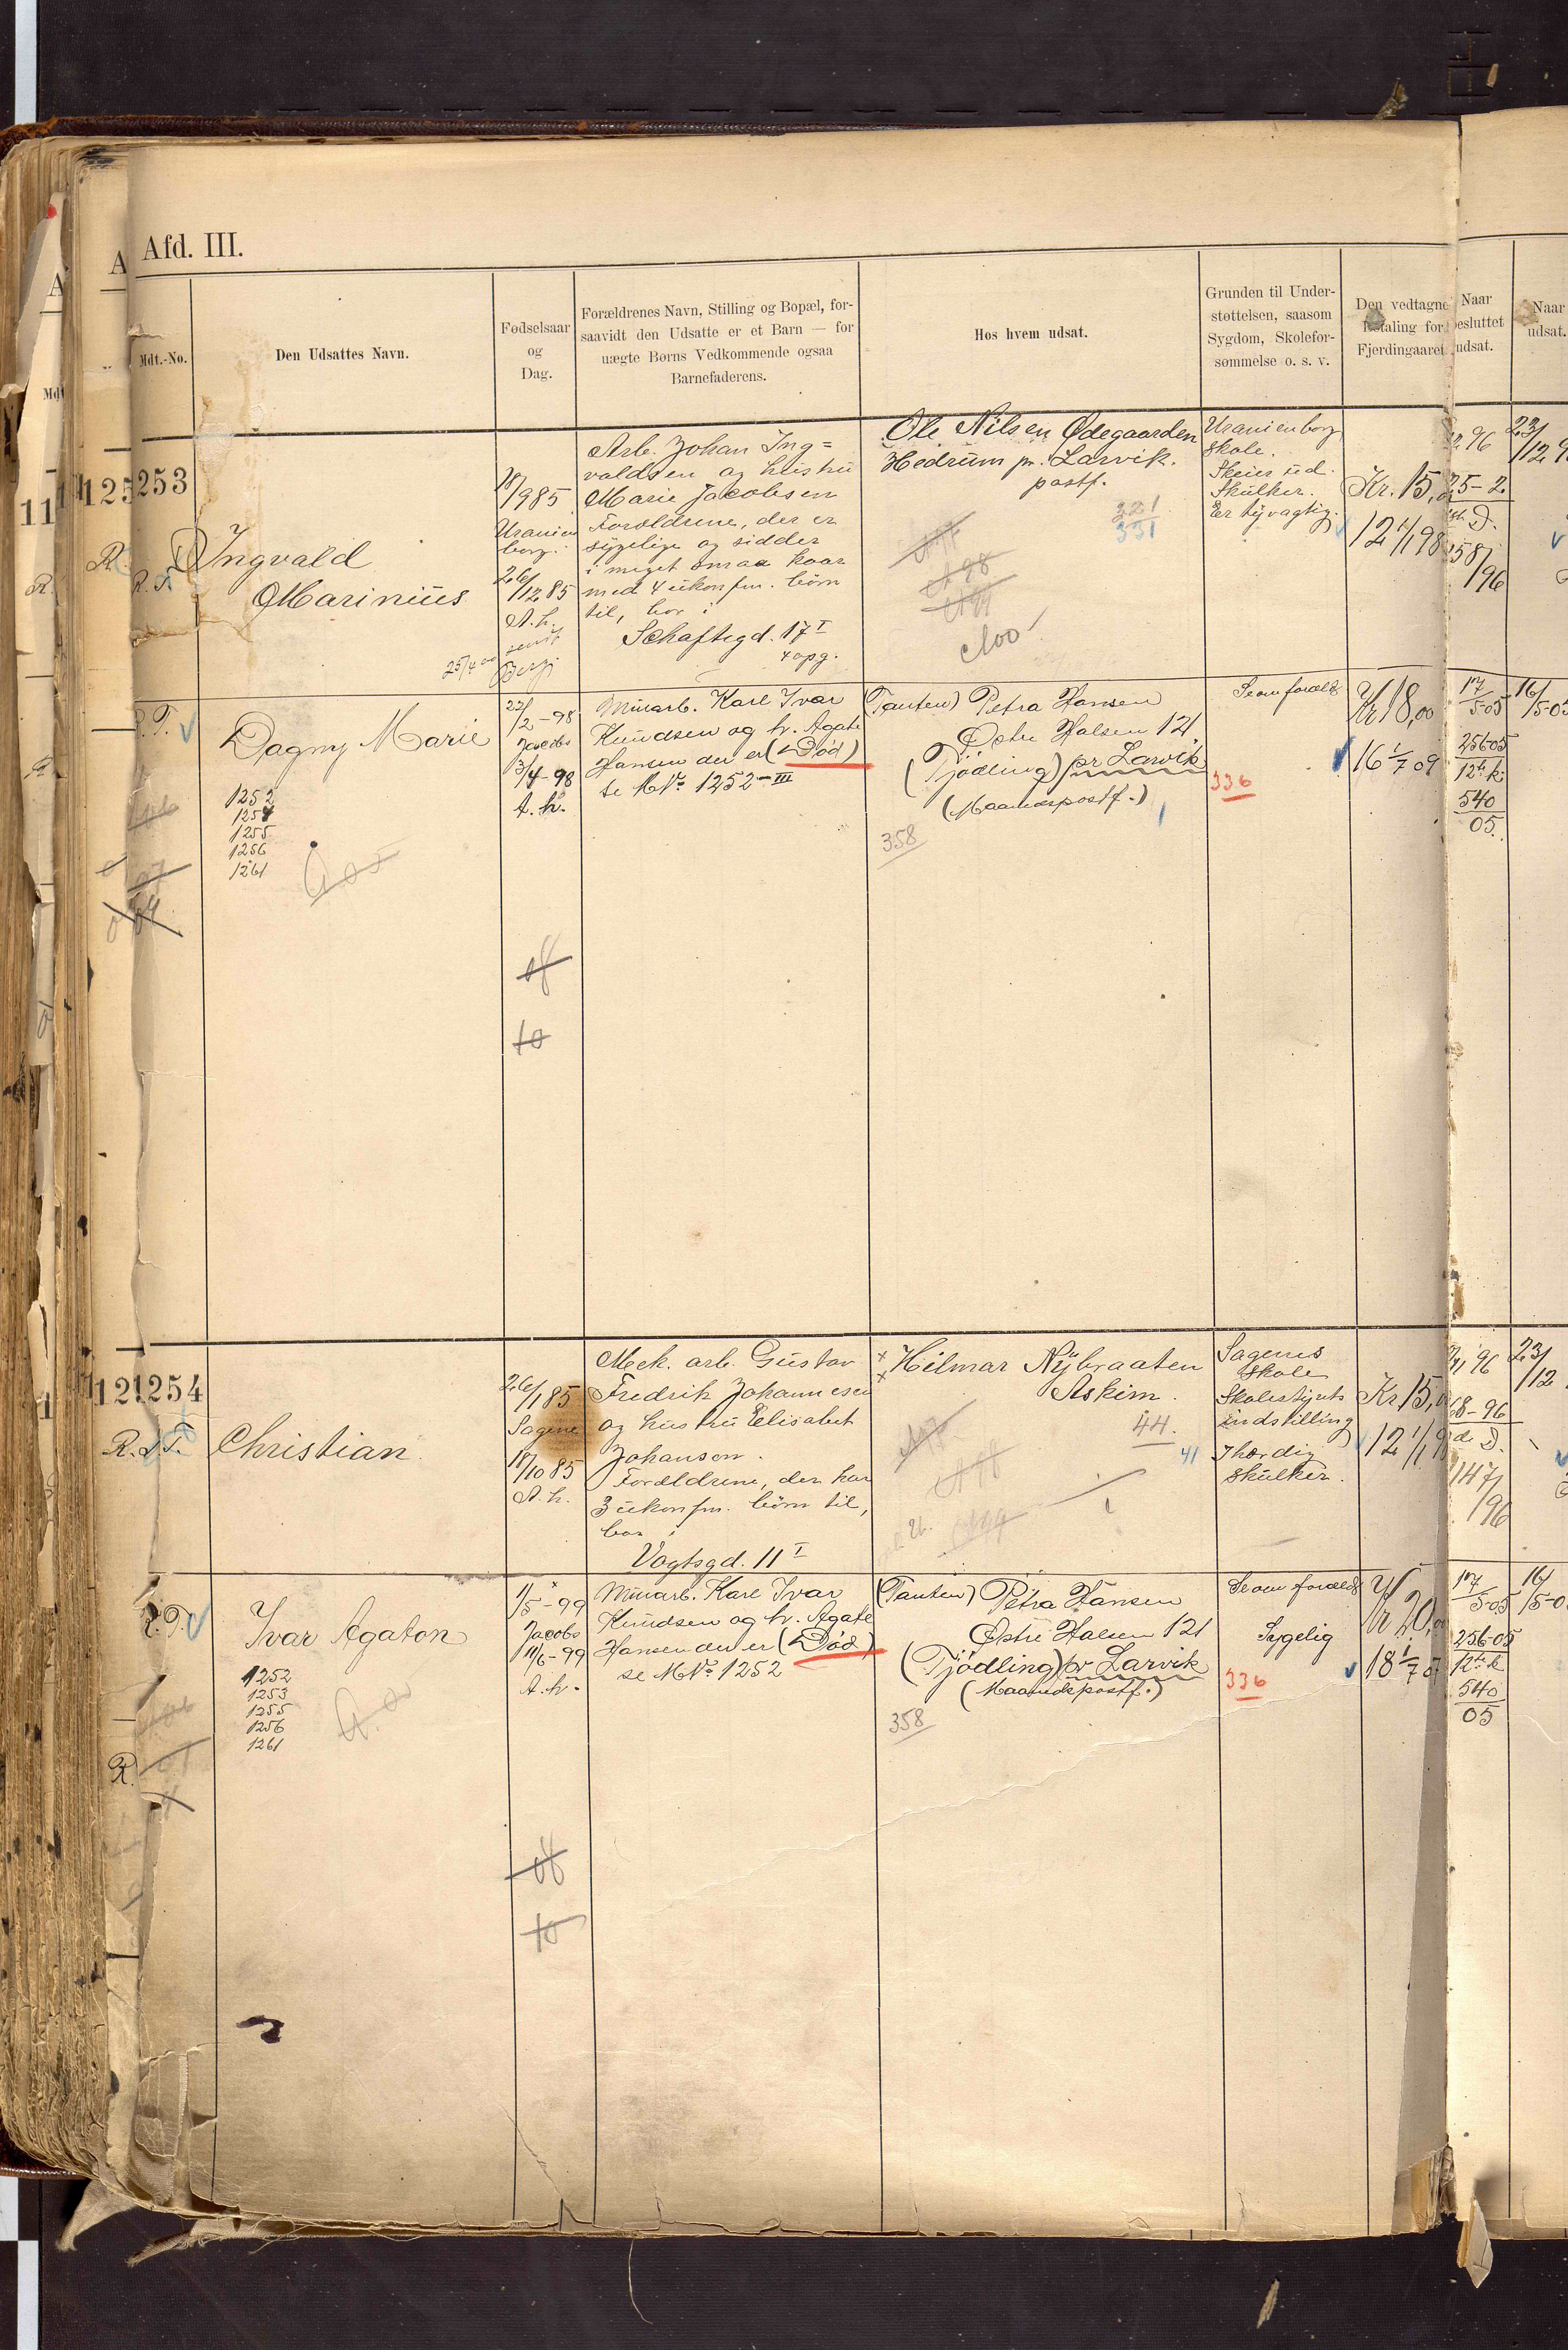 Afd. III.
Mdt.-No.
Den Udsattes Navn.
Fødselsaar
og
Dag.
Forældrenes Navn, Stilling og Bopæl, for-
saavidt den Udsatte er et Barn — for
uægte Børns Vedkommende ogsaa
Barnefaderens.
Hos hvem udsat.
Grunden til Under-
støttelsen, saasom
Sygdom, Skolefor-
sømmelse o. s. v.
Den vedtagne
Betaling for
Fjerdingaaret
Naar
besluttet
udsat.
Naar
udsat.
1253
R. T.
Ingvald
Marinius
18/
/985
Uranien
borg.
26/
/1285
A. h.
25/4 00 sendt
Arb. Johan Ing=
valdsen og hustru
Marie Jacobsen
Forældrene, der er
sygelige og sidder
i meget smaa kaar
med 4 ukonfm. börn
til, bor i
Schaftsgd. 17 I
4 opg.
Ole Nilsen Ødegaarden
Hedrum pr. Larvik.
postf.
221
331
A 98
A 99
A 00
Uranienborg
skole.
Skeier ud.
Skulker.
Er tyvagtig.
Kr. 15,
12 1/1 98
96
25-2
D.
358/
/96
23/
/12 9
R. T.
Dagny Marie
1252
1254
1255
1256
1261
22/
/2-98
Jacobs
3/4-98
A. h.
08
10
Murarb. Karl Ivar
Knudsen og h. Agate
Hansen der er (Død)
se MNo 1252-III
(Tanten) Petra Hansen
Østre Halsen 121
(Tjødling) pr Larvik
(Maanedspostf.)
358
Se om foræld
336
Kr 18,00
16 1/7 09
17/
5-05
256-05
12te k.
540
05.
16/
/5-05
1254
R. T.
Christian
26/
/185
Sagene
18/
/1085
A. h.
Mek. arb. Gustav
Fredrik Johannesen
og hustru Elisabet
Johansen.
Forældrene, der har
3 ukonfm. börn til,
bor i
Vogtsgd. 11 I
Hilmar Nybraaten
Askim.
44.
41
A 98
A 99
Sagenes
skole
Skolestyrets
indstilling
Ihærdig
skulker.
Kr 15,
12 1/1 98
96
68-96
D.
147/
/96
23/
/12
R. T.
Ivar Agaton
1252
1253
1255
1256
1261
11/
/5-99
Jacobs
11/6-99
A. h.
08
10
Murarb. Karl Ivar
Knudsen og h. Agate
Hansen der er (Død)
se MNo 1252
(Tanten) Petra Hansen
Østre Halsen 121
(Tjødling) pr Larvik
(Maanedspostf.)
358
Se om foræld
Sygelig
336
Kr 20,00
18 1/7 07
17/
5-05
256-05
12te k
540
05
16/
/5-0